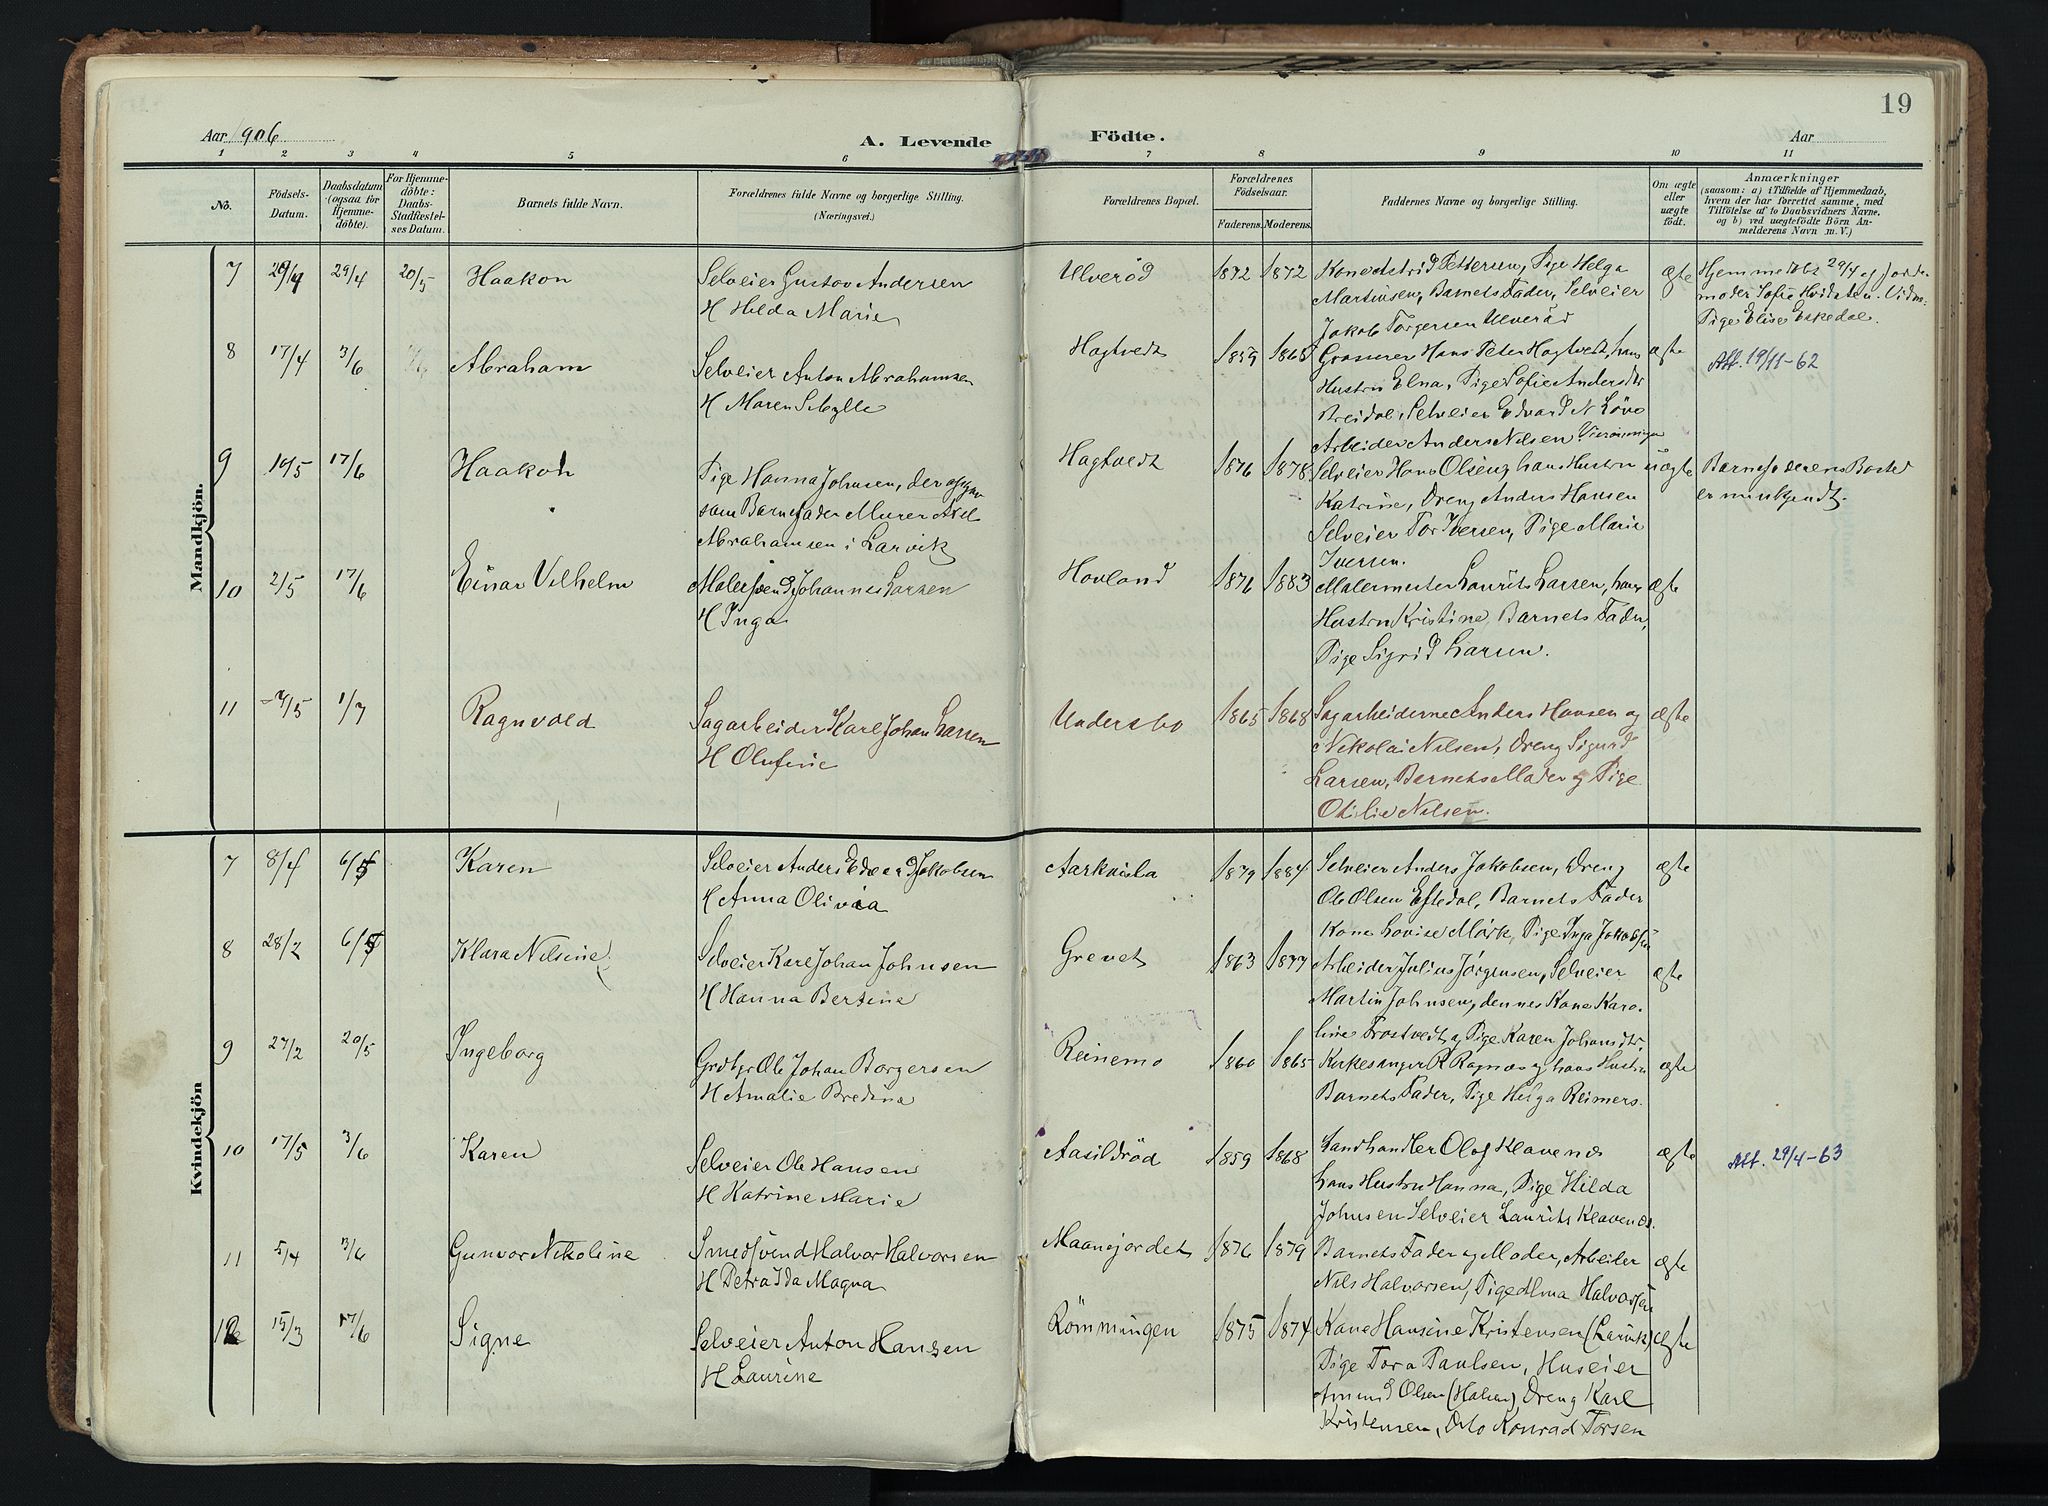 19
Aar 1906
A. Levende Födte.
Aar
1 2 3 4 5 6 7 8 9 10 11
No.
Födsels-Datum.
Daabsdatum (ogsaa for Hjemme-döbte).
For Hjemme-döbte: Daabs-Stadfæstel-ses Datum.
Barnets fulde Navn.
Forældrenes fulde Navne og borgerlige Stilling.
(Næringsvei.)
Forældrenes Bopæl.
Forældrenes Födselsaar.
Faderens. Moderens.
Faddernes Navne og borgerlige Stilling.
Om ægte eller uægte födt.
Anmærkninger
(saasom: a) i Tilfælde af Hjemmedaab, hvem der har forrettet samme, med Tilföielse af to Daabsvidners Navne, og b) ved uægtefödte Börn Anmelderens Navn m. V.)
Mandkjön.
7 29/4 29/4 20/5 Haakon
Selveier Gustav Andersen
H Hilda Marie
Ulveröd 1872 1872
Kone Astrid Pettersen, Pige Helga
Martinsen, Barnets Fader, Selveier
Jakob Torgersen Ulveröd
ægte
Hjemmedöbt 29/4 af Jorde-
moder Sofie Hvidsten. Vidn.
Pige Elise Eskedal.
8 17/4 3/6 Abraham
Selveier Anton Abrahamsen
H Maren Sibylle
Hagtvedt 1859 1865
Grosserer Hans Peter Hagtvedt, hans
Hustru Elna, Pige Sofie Andersdtr
Breidal, Selveier Edvard N Lövo
Arbeider Anders Nilsen
ægte
Att. 19/11-62
9 10/5 17/6 Haakon
Pige Hanna Johnsen, der opgav
som Barnefader Murer Axel
Abrahamsen i Larvik
Hagtvedt 1876 1878
Selveier Hans Olsen, hans Hustru
Katrine, Dreng Anders Hansen
Selveier Tor Iversen, Pige Marie
Iversen.
uægte
Barnefaderens Bosted
er
10 2/5 17/6 Einar Vilhelm
Malersvend Johannes Larsen
H Inga
Hovland 1876 1883
Malermester Laurits Larsen, hans
Hustru Kristine, Barnets Fader,
Pige Sigrid Larsen.
ægte
11 7/5 1/7 Ragnvald
Sagarbeider Karl Johan Larsen
H Olufine
Undersbo 1865 1868
Sagarbeiderne Anders Hansen og
Nikolai Nilsen, Dreng Sigurd
Larsen, Barnets Moder og Pige
Otilie Nilsen.
ægte
Kvindekjön
7 8/4 6/5 Karen
Selveier Anders Edvard Jakobsen
H Anna Olivia
Aarkvisla 1879 1884
Selveier Anders Jakobsen, Dreng
Ole Olsen Eftedal, Barnets Fader
Kone Lovise Mörk, Pige Inga Jakobsen
ægte
8 28/2 6/5 Klara Nilsine
Selveier Karl Johan Johnsen
H Hanna Bertine
Grevet 1863 1877
Arbeider Julius Jörgensen, Selveier
Martin Johnsen, dennes Kone Karo-
line Trostvedt og Pige Karen Johansdtr.
ægte
9 27/2 20/5 Ingeborg
Grdbr Ole Johan Borgersen
H Amalie Bredina
Reinemo 1860 1865
Kirkesanger R Ragnæs og hans Hustru
Barnets Fader, Pige Helga Reimers.
ægte
10 17/5 3/6 Karen
Selveier Ole Hansen
H Katrine Marie
Aasildröd 1859 1868
Landhandler Olaf Klavenæs
hans Hustru Hanna, Pige Hilda
Johnsen Selveier Laurits Klavenæs.
ægte
Att. 29/4-63
11 5/4 3/6 Gunvor Nikoline
Smedsvend Halvor Halvorsen
H Petra Ida Magna
Maanejordet 1876 1879
Barnets Fader og Moder, Arbeider
Nils Halvorsen, Pige Alma Halvorsen
ægte
12 15/3 17/6 Signe
Selveier Anton Hansen
H Laurine
Römmingen 1875 1874
Kone Hansine Kristensen (Larvik)
Pige Tora Paulsen, Huseier
Amund Olsen (Halsen) Dreng Karl
Kristensen, Oslo Konrad Torsen
ægte